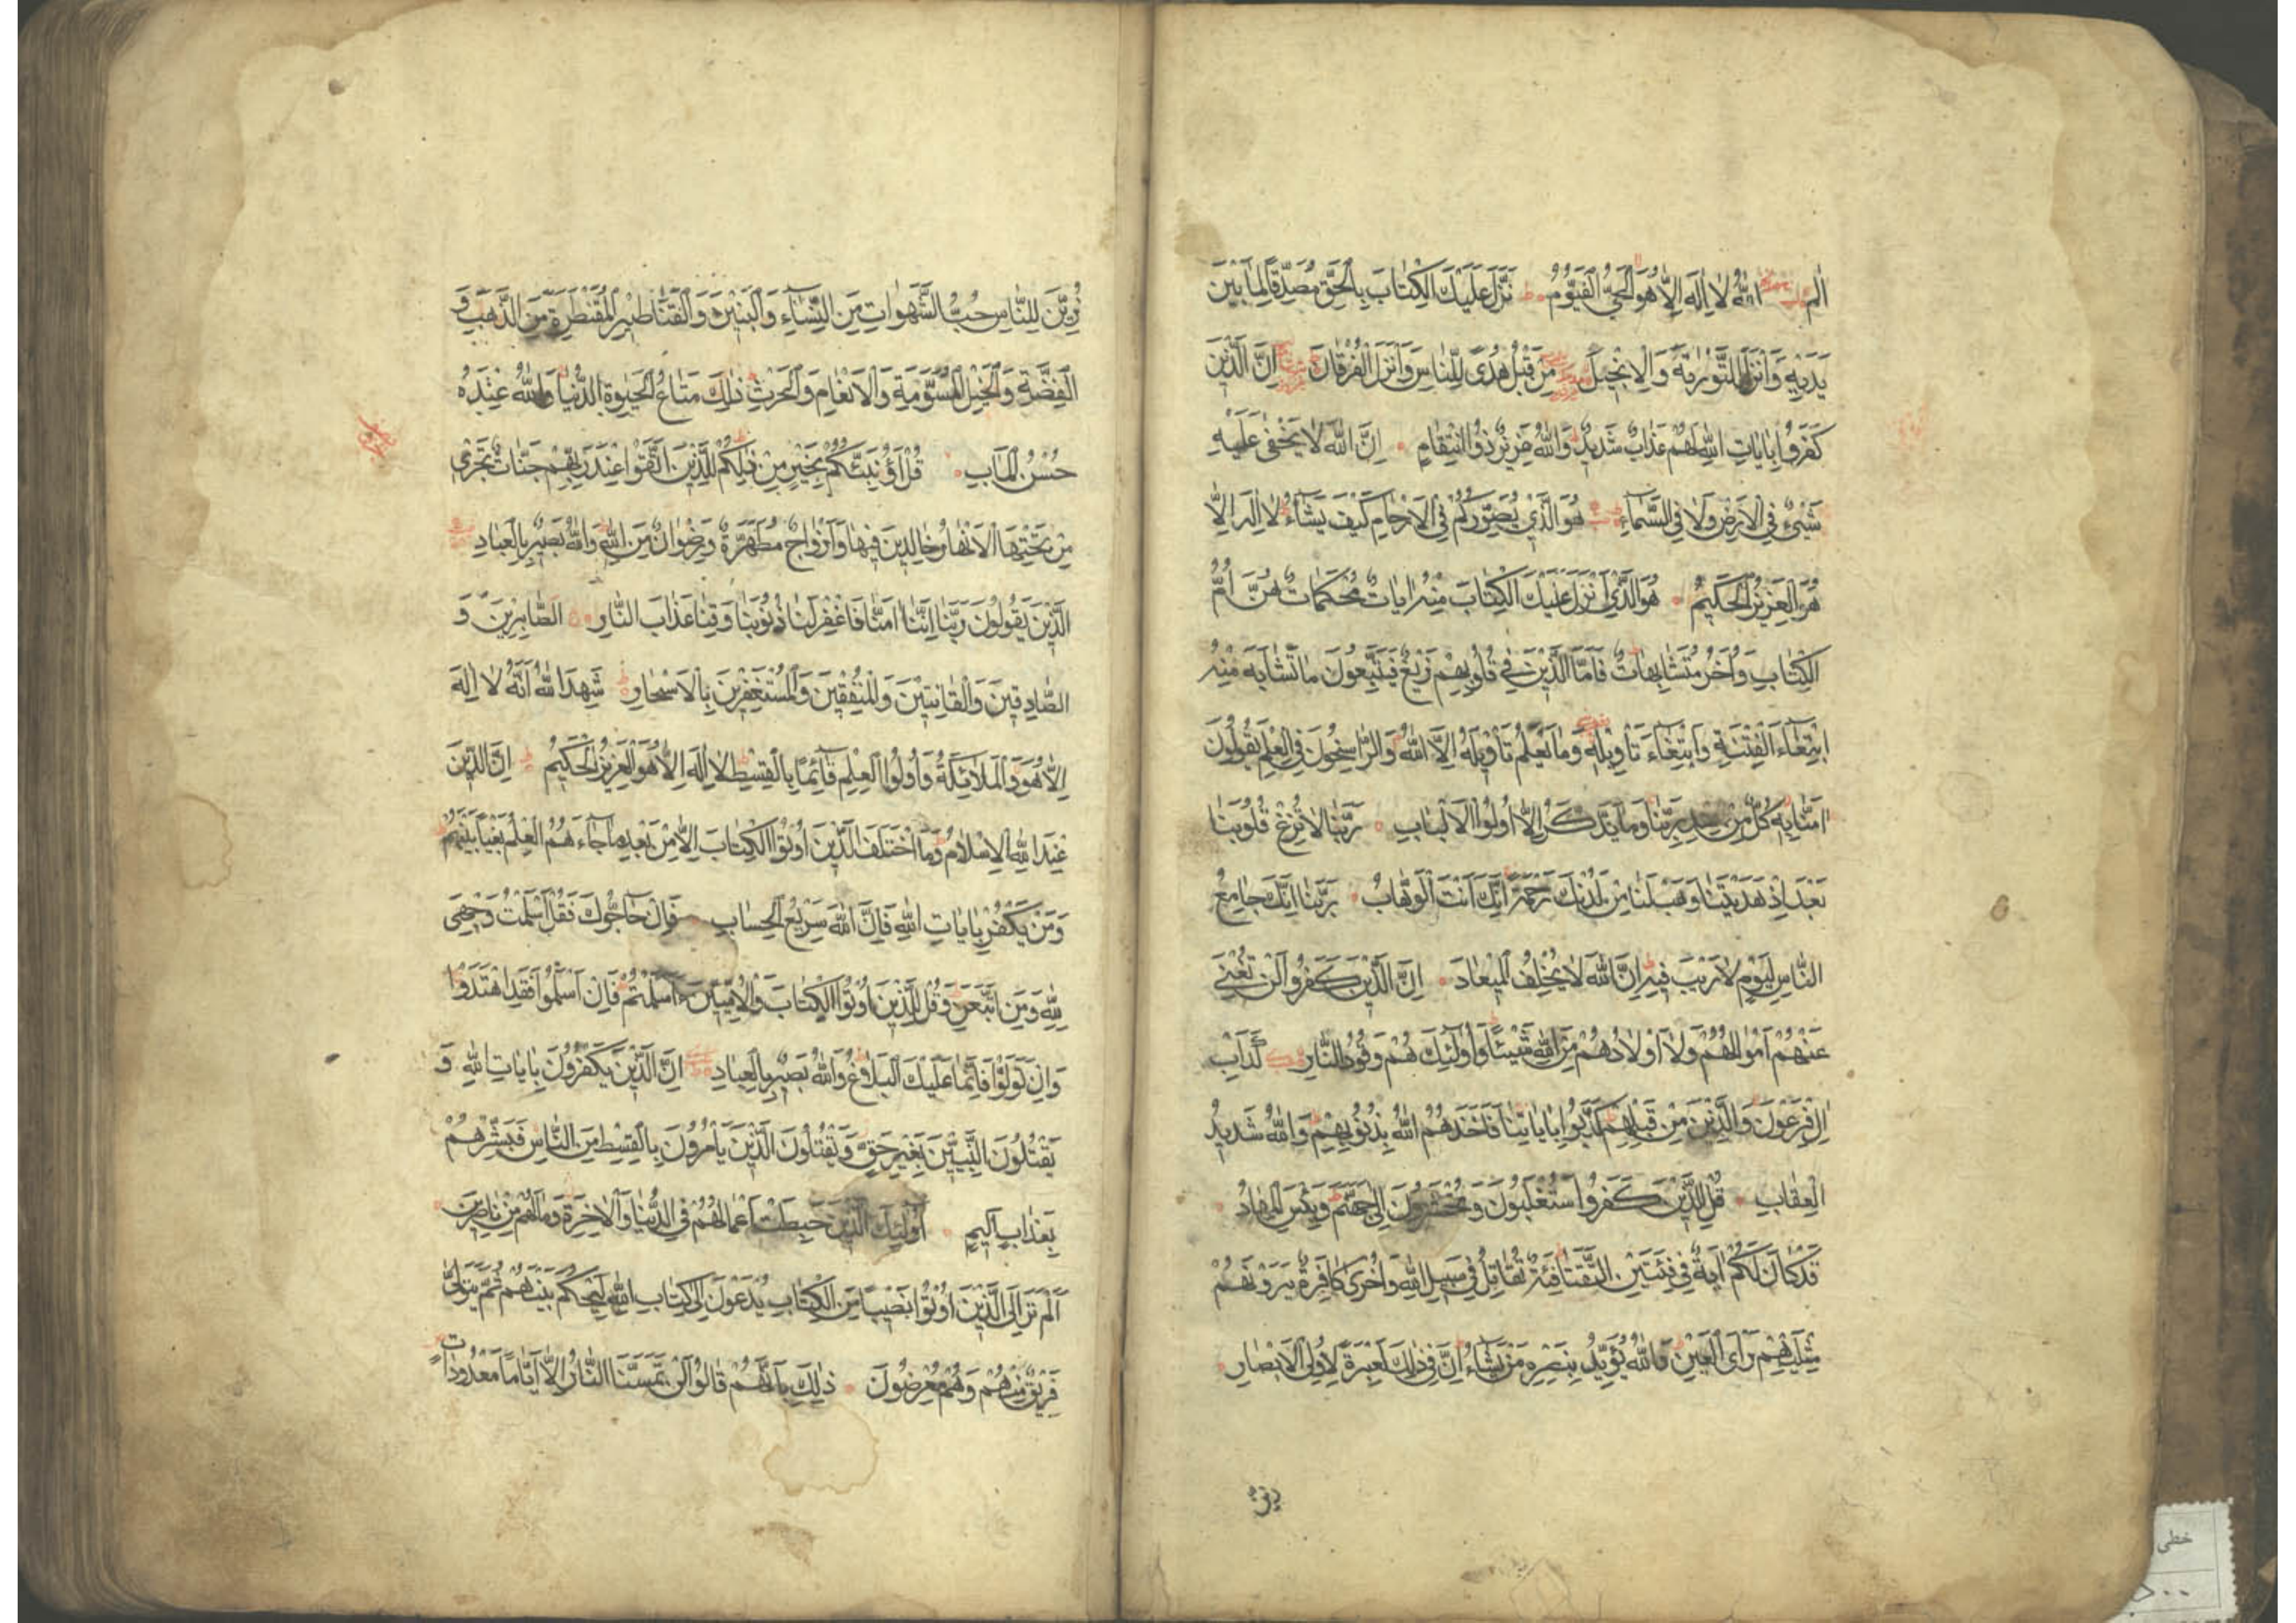 الم اللّٰهُ لَا اِلٰهَ اِلَّا هُوَ الْحَيُّ الْقَيُّومُ نَزَّلَ عَلَيْكَ الْكِتَابَ بِالْحَقِّ مُصَدِّقًا لِمَا بَيْنَ
يَدَيْهِ وَاَنْزَلَ التَّوْرٰيةَ وَالْاِنْجِيلَ مِنْ قَبْلُ هُدًى لِلنَّاسِ وَاَنْزَلَ الْفُرْقَانَ اِنَّ الَّذِينَ
كَفَرُوا بِاٰيَاتِ اللّٰهِ لَهُمْ عَذَابٌ شَدِيدٌ وَاللّٰهُ عَزِيزٌ ذُوانْتِقَامٍ اِنَّ اللّٰهَ لَا يَخْفٰى عَلَيْهِ
شَيْءٌ فِي الْاَرْضِ وَلَا فِي السَّمَاءِ هُوَ الَّذِي يُصَوِّرُكُمْ فِي الْاَرْحَامِ كَيْفَ يَشَاءُ لَا اِلٰهَ اِلَّا
هُوَ الْعَزِيزُ الْحَكِيمُ هُوَ الَّذِي اَنْزَلَ عَلَيْكَ الْكِتَابَ مِنْهُ اٰيَاتٌ مُحْكَمَاتٌ هُنَّ اُمُّ
الْكِتَابِ وَاُخَرُ مُتَشَابِهَاتٌ فَاَمَّا الَّذِينَ فِي قُلُوبِهِمْ زَيْغٌ فَيَتَّبِعُونَ مَا تَشَابَهَ مِنْهُ
ابْتِغَاءَ الْفِتْنَةِ وَابْتِغَاءَ تَأْوِيلِهِ وَمَا يَعْلَمُ تَأْوِيلَهُ اِلَّا اللّٰهُ وَالرَّاسِخُونَ فِي الْعِلْمِ يَقُولُونَ
اٰمَنَّا بِهِ كُلٌّ مِنْ عِنْدِ رَبِّنَا وَمَا يَذَّكَّرُ اِلَّا اُولُوا الْاَلْبَابِ رَبَّنَا لَا تُزِغْ قُلُوبَنَا
بَعْدَ اِذْ هَدَيْتَنَا وَهَبْ لَنَا مِنْ لَدُنْكَ رَحْمَةً اِنَّكَ اَنْتَ الْوَهَّابُ رَبَّنَا اِنَّكَ جَامِعُ
النَّاسِ لِيَوْمٍ لَا رَيْبَ فِيهِ اِنَّ اللّٰهَ لَا يُخْلِفُ الْمِيعَادَ اِنَّ الَّذِينَ كَفَرُوا لَنْ تُغْنِيَ
عَنْهُمْ اَمْوَالُهُمْ وَلَا اَوْلَادُهُمْ مِنَ اللّٰهِ شَيْئًا وَاُولٰئِكَ هُمْ وَقُودُ النَّارِ كَدَأْبِ
اٰلِ فِرْعَوْنَ وَالَّذِينَ مِنْ قَبْلِهِمْ كَذَّبُوا بِاٰيَاتِنَا فَاَخَذَهُمُ اللّٰهُ بِذُنُوبِهِمْ وَاللّٰهُ شَدِيدُ
الْعِقَابِ قُلْ لِلَّذِينَ كَفَرُوا سَتُغْلَبُونَ وَتُحْشَرُونَ اِلٰى جَهَنَّمَ وَبِئْسَ الْمِهَادُ
قَدْ كَانَ لَكُمْ اٰيَةٌ فِي فِئَتَيْنِ الْتَقَتَا فِئَةٌ تُقَاتِلُ فِي سَبِيلِ اللّٰهِ وَاُخْرٰى كَافِرَةٌ يَرَوْنَهُمْ
مِثْلَيْهِمْ رَأْيَ الْعَيْنِ وَاللّٰهُ يُؤَيِّدُ بِنَصْرِهِ مَنْ يَشَاءُ اِنَّ فِي ذٰلِكَ لَعِبْرَةً لِاُولِي الْاَبْصَارِ
زين
زُيِّنَ لِلنَّاسِ حُبُّ الشَّهَوَاتِ مِنَ النِّسَاءِ وَالْبَنِينَ وَالْقَنَاطِيرِ الْمُقَنْطَرَةِ مِنَ الذَّهَبِ وَ
الْفِضَّةِ وَالْخَيْلِ الْمُسَوَّمَةِ وَالْاَنْعَامِ وَالْحَرْثِ ذٰلِكَ مَتَاعُ الْحَيٰوةِ الدُّنْيَا وَاللّٰهُ عِنْدَهُ
حُسْنُ الْمَاٰبِ قُلْ اَؤُنَبِّئُكُمْ بِخَيْرٍ مِنْ ذٰلِكُمْ لِلَّذِينَ اتَّقَوْا عِنْدَ رَبِّهِمْ جَنَّاتٌ تَجْرِي
مِنْ تَحْتِهَا الْاَنْهَارُ خَالِدِينَ فِيهَا وَاَزْوَاجٌ مُطَهَّرَةٌ وَرِضْوَانٌ مِنَ اللّٰهِ وَاللّٰهُ بَصِيرٌ بِالْعِبَادِ
الَّذِينَ يَقُولُونَ رَبَّنَا اِنَّنَا اٰمَنَّا فَاغْفِرْ لَنَا ذُنُوبَنَا وَقِنَا عَذَابَ النَّارِ الصَّابِرِينَ وَ
الصَّادِقِينَ وَالْقَانِتِينَ وَالْمُنْفِقِينَ وَالْمُسْتَغْفِرِينَ بِالْاَسْحَارِ شَهِدَ اللّٰهُ اَنَّهُ لَا اِلٰهَ
اِلَّا هُوَ وَالْمَلَائِكَةُ وَاُولُوا الْعِلْمِ قَائِمًا بِالْقِسْطِ لَا اِلٰهَ اِلَّا هُوَ الْعَزِيزُ الْحَكِيمُ اِنَّ الدِّينَ
عِنْدَ اللّٰهِ الْاِسْلَامُ وَمَا اخْتَلَفَ الَّذِينَ اُوتُوا الْكِتَابَ اِلَّا مِنْ بَعْدِ مَا جَاءَهُمُ الْعِلْمُ بَغْيًا بَيْنَهُمْ
وَمَنْ يَكْفُرْ بِاٰيَاتِ اللّٰهِ فَاِنَّ اللّٰهَ سَرِيعُ الْحِسَابِ فَاِنْ حَاجُّوكَ فَقُلْ اَسْلَمْتُ وَجْهِيَ
لِلّٰهِ وَمَنِ اتَّبَعَنِ وَقُلْ لِلَّذِينَ اُوتُوا الْكِتَابَ وَالْاُمِّيِّينَ ءَاَسْلَمْتُمْ فَاِنْ اَسْلَمُوا فَقَدِ اهْتَدَوْا
وَاِنْ تَوَلَّوْا فَاِنَّمَا عَلَيْكَ الْبَلَاغُ وَاللّٰهُ بَصِيرٌ بِالْعِبَادِ اِنَّ الَّذِينَ يَكْفُرُونَ بِاٰيَاتِ اللّٰهِ وَ
يَقْتُلُونَ النَّبِيِّينَ بِغَيْرِ حَقٍّ وَيَقْتُلُونَ الَّذِينَ يَأْمُرُونَ بِالْقِسْطِ مِنَ النَّاسِ فَبَشِّرْهُمْ
بِعَذَابٍ اَلِيمٍ اُولٰئِكَ الَّذِينَ حَبِطَتْ اَعْمَالُهُمْ فِي الدُّنْيَا وَالْاٰخِرَةِ وَمَا لَهُمْ مِنْ نَاصِرِينَ
اَلَمْ تَرَ اِلَى الَّذِينَ اُوتُوا نَصِيبًا مِنَ الْكِتَابِ يُدْعَوْنَ اِلٰى كِتَابِ اللّٰهِ لِيَحْكُمَ بَيْنَهُمْ ثُمَّ يَتَوَلّٰى
فَرِيقٌ مِنْهُمْ وَهُمْ مُعْرِضُونَ ذٰلِكَ بِاَنَّهُمْ قَالُوا لَنْ تَمَسَّنَا النَّارُ اِلَّا اَيَّامًا مَعْدُودَاتٍ
خطى